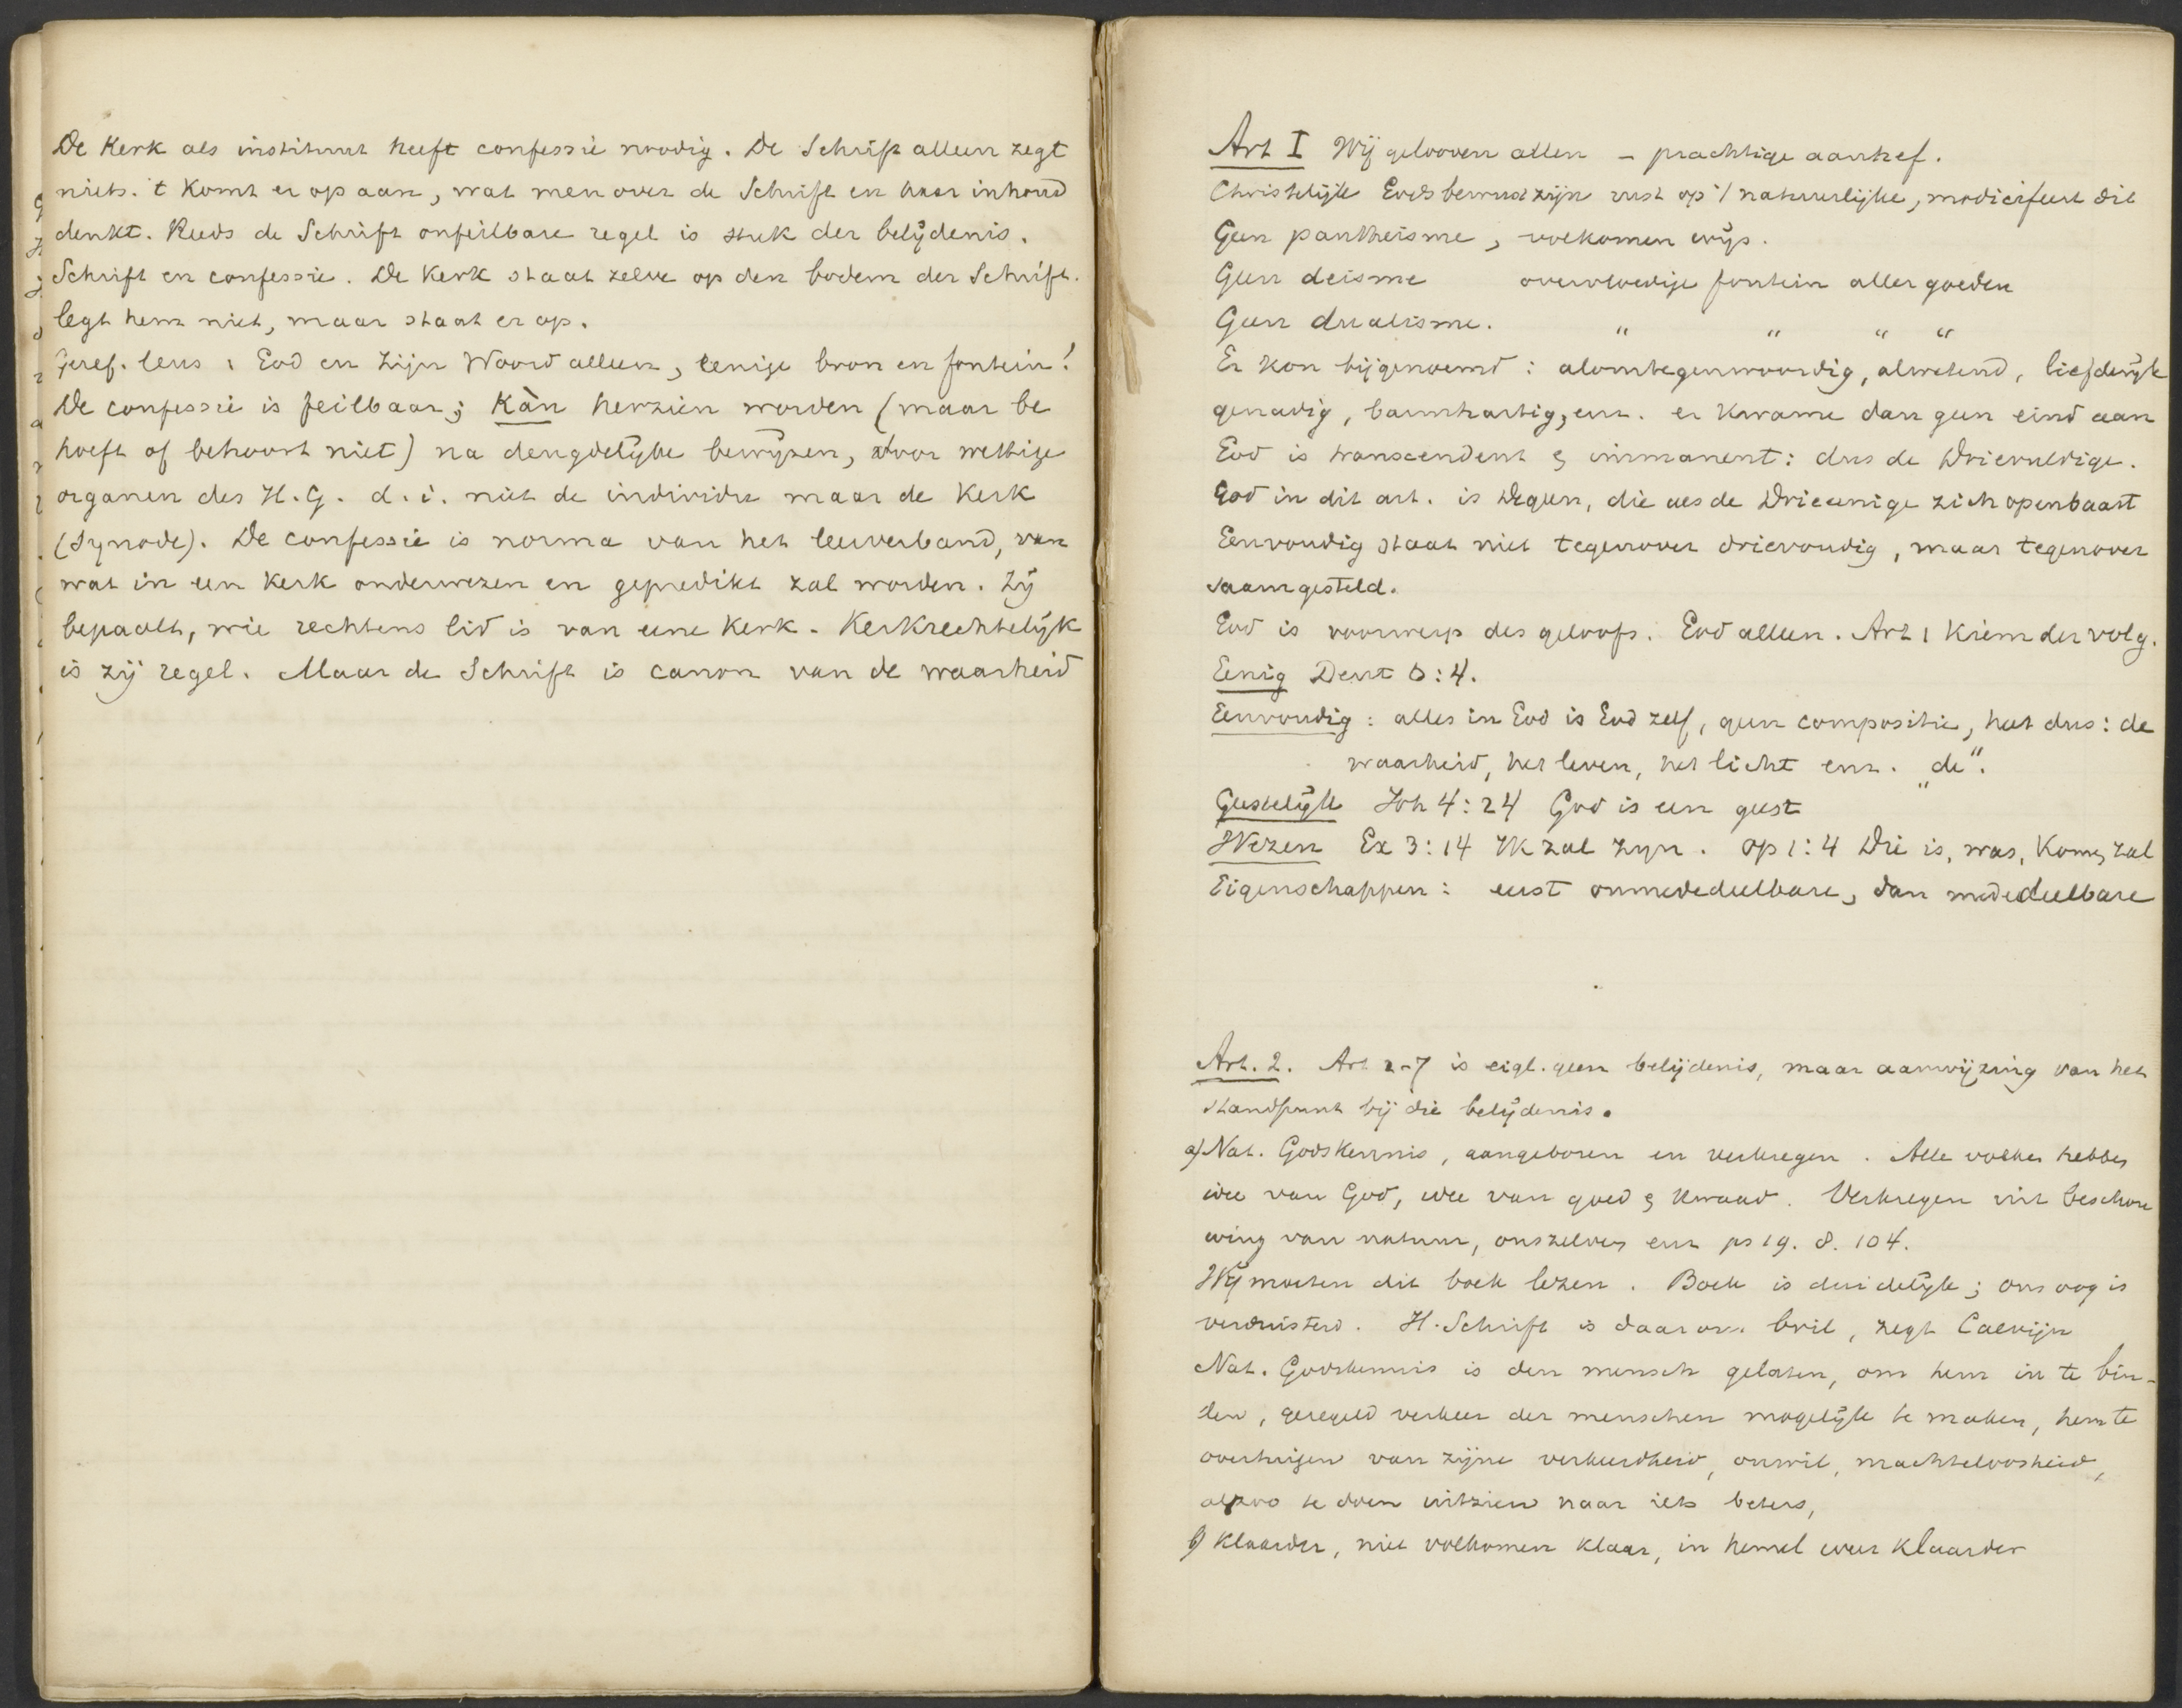 De Kerk als instituut heeft confessie noodig. De Schrift alleen zegt
niets. 't Komt er op aan, wat men over de Schrift en haar inhoud
denkt. Reeds de Schrift onfeilbare regel is stuk der belijdenis.
Schrift en confessie. De Kerk staat zelve op den bodem der Schrift.
legt hem niet, maar staat er op.
Geref. leus: God en Zijn Woord alleen, eenige bron en fontein!
De confessie is feilbaar; Kàn herzien worden (maar be
hoeft of behoort niet) na deugdelijke bewijzen, door wettige
organen des H.G. d.i. niet de individu maar de Kerk
(Synode). De confessie is norma van het leerverband, van
wat in een Kerk onderwezen en gepredikt zal worden. Zij
bepaalt, wie rechtens lid is van eene Kerk. Kerkrechtelijk
is zij regel. Maar de Schrift is canon van de waarheid
Art I Wij gelooven allen – prachtige aanhef.
Christelijk Godsbewustzijn rust op 't natuurlijke, modicifeert dit
Geen pantheisme, volkomen wijs.
Geen deisme overvloedige fontein aller goeden
Geen dualisme. " " " "
Er kon bijgenoemd: alomtegenwoordig, alwetend, liefderijk
genadig, barmhartig, enz. er kwame dan geen eind aan
God is transcendent & immanent: dus de Drievuldige.
God in dit art. is Degeen, die als de Drieeenige zich openbaart
Eenvoudig staat niet tegenover drievoudig, maar tegenover
saamgesteld.
God is voorwerp des geloofs. God alleen. Art 1 Kiem der volg.
Eenig Deut 6:4.
Eenvoudig: alles in God is God zelf, geen compositie, heet dus: de
waarheid, het leven, het licht enz. „de".
Geestelijk Joh 4:24 God is een geest
Wezen Ex 3:14 Ik zal zijn. Op 1:4 Die is, was, Komen zal
Eigenschappen: eerst onmededeelbare, dan mededeelbare
Art. 2. Art 2-7 is eigl. geen belijdenis, maar aanwijzing van het
standpunt bij die belijdenis.
a) Nat. Godskennis, aangeboren en verkregen. Alle volken hebben
idee van God, idee van goed & kwaad. Verkregen uit beschou
wing van natuur, onszelven enz ps 19. 8. 104.
Wij moeten dit boek lezen. Boek is duidelijk; ons oog is
verduisterd. H. Schrift is daarom bril, zegt Calvijn
Nat. Godskennis is den mensch gelaten, om hem in te bin-
den, geregeld verkeer der menschen mogelijk te maken, hem te
overtuigen van zijne verkeerdheid, onwil, machteloosheid,
alzoo te doen uitzien naar iets beters,
b) Klaarder, niet volkomen klaar, in hemel weer klaarder